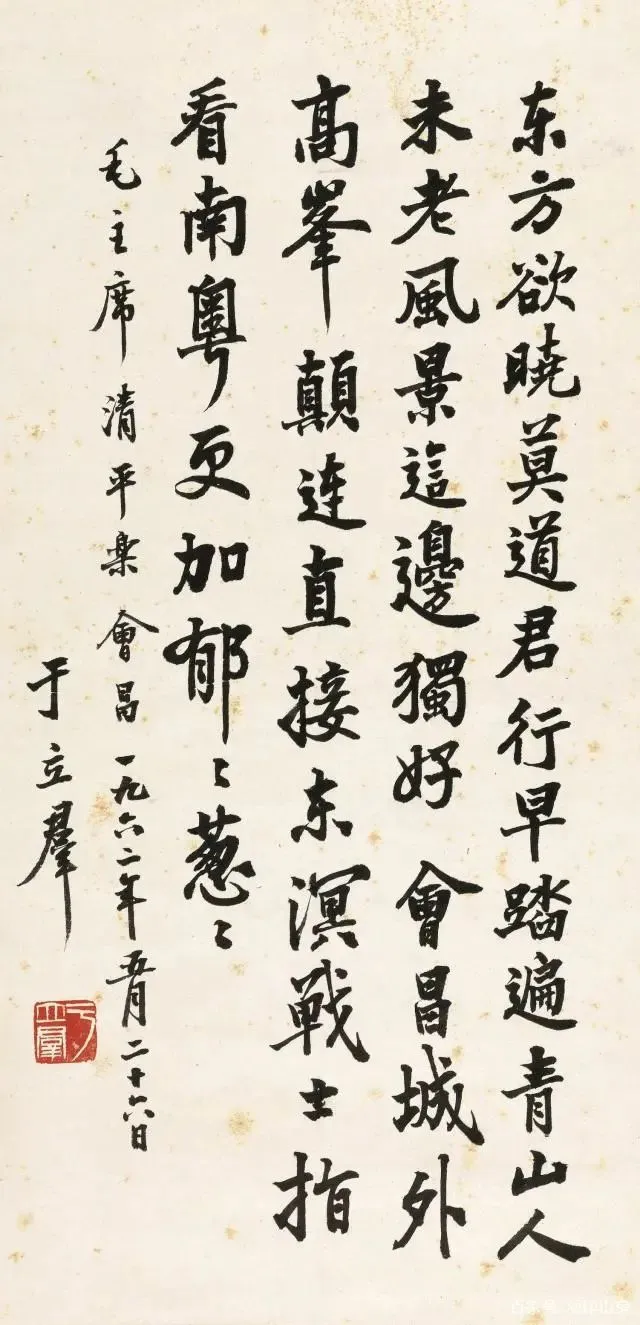 东方欲晓莫道君行早踏遍青山人
未老風景這邊獨好 會昌城外
高峯顛連直接东溟戰士指
看南粤更加郁〻葱〻
毛主席清平楽會昌 一九六二年五月二十六日
于立羣
于立羣